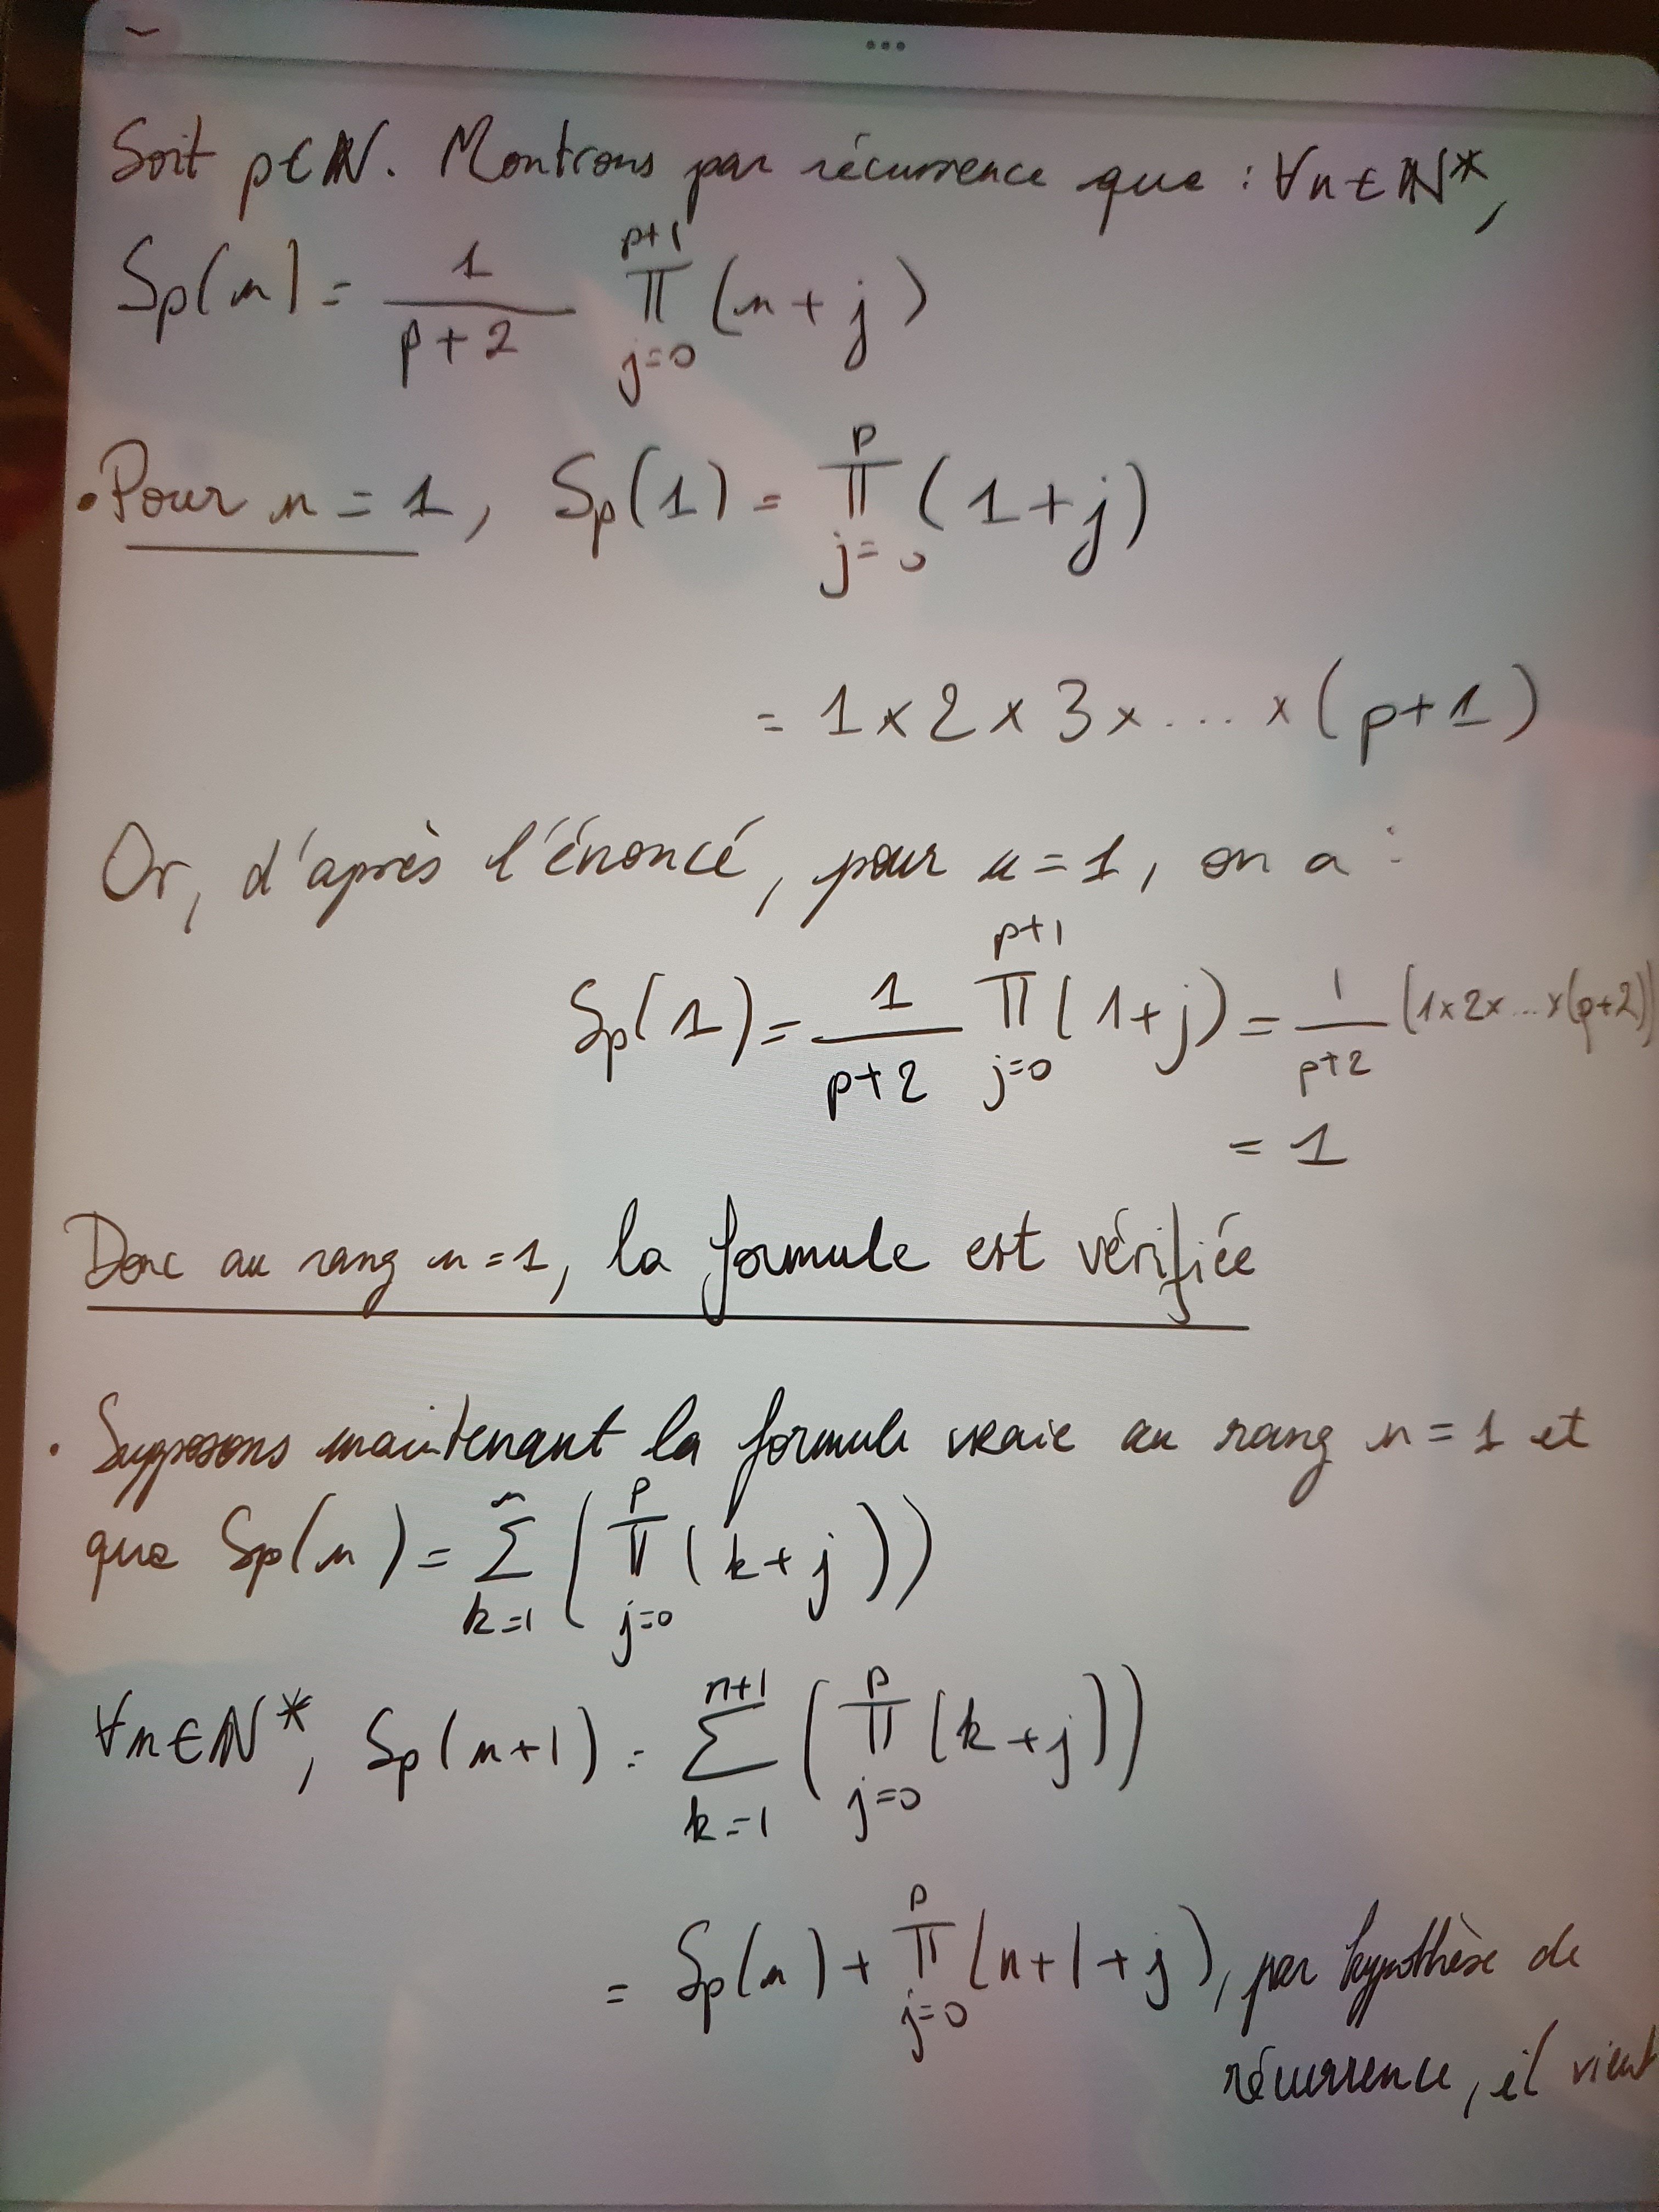 Soit p∈ℕ. Montrons par récurrence que : ∀n∈ℕ*,
Sp(n) = 1/(p+2) ∏_{j=0}^{p+1} (n+j)
• Pour n = 1, Sp(1) = ∏_{j=0}^{p} (1+j)
= 1×2×3×....×(p+1)
Or, d'après l'énoncé, pour n=1, on a :
Sp(1) = 1/(p+2) ∏_{j=0}^{p+1} (1+j) = 1/(p+2) (1×2×...×(p+2))
= 1
Donc au rang n=1, la formule est vérifiée
• Supposons maintenant la formule vraie au rang n=1 et
que Sp(n) = ∑_{k=1}^{n} (∏_{j=0}^{p} (k+j))
∀n∈ℕ*, Sp(n+1) = ∑_{k=1}^{n+1} (∏_{j=0}^{p} (k+j))
= Sp(n) + ∏_{j=0}^{p} (n+1+j), par hypothèse de
récurrence, il vient